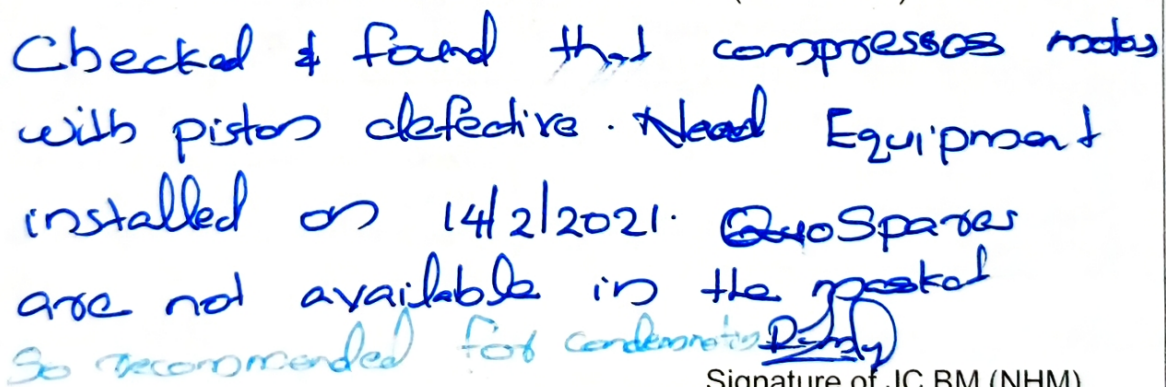 Checked & found that compressor motor
with piston defective. Need Equipment
installed on 14/2/2021. Spares
are not available in the market
So recommended for condemnation
Signature of JC BM (NHM)